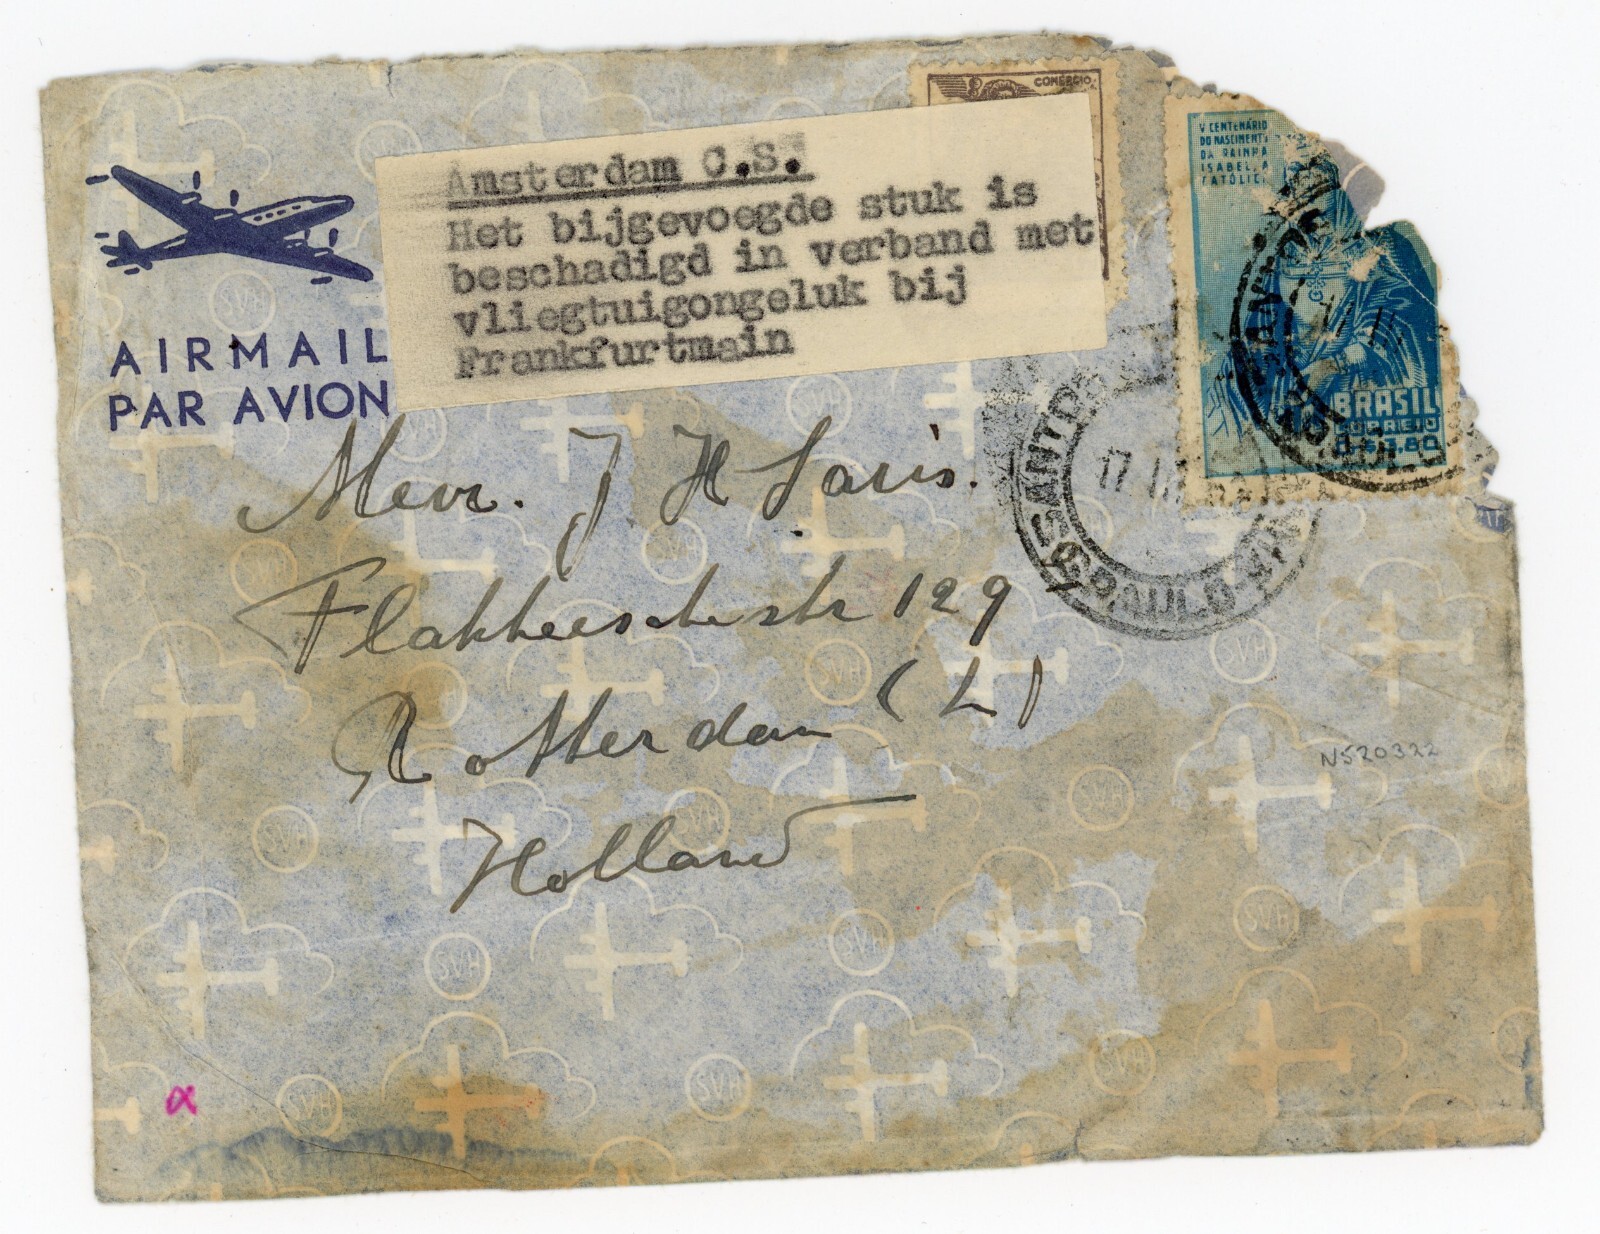 AIRMAIL
PAR AVION
Amsterdam C.S.
Het bijgevoegde stuk is
beschadigd in verband met
vliegtuigongeluk bij
Frankfurtmain
COMERCIO
V CENTENÁRIO
DO NASCIMENTO
DA RAINHA
ISABEL, A
CATÓLIC
BRASIL
CORREIO
SANTOS
S. PAULO
17
Mevr. J H Saris.
Flakkeeschestr 129
Rotterdam (Z)
Holland
N520322
α
SVH